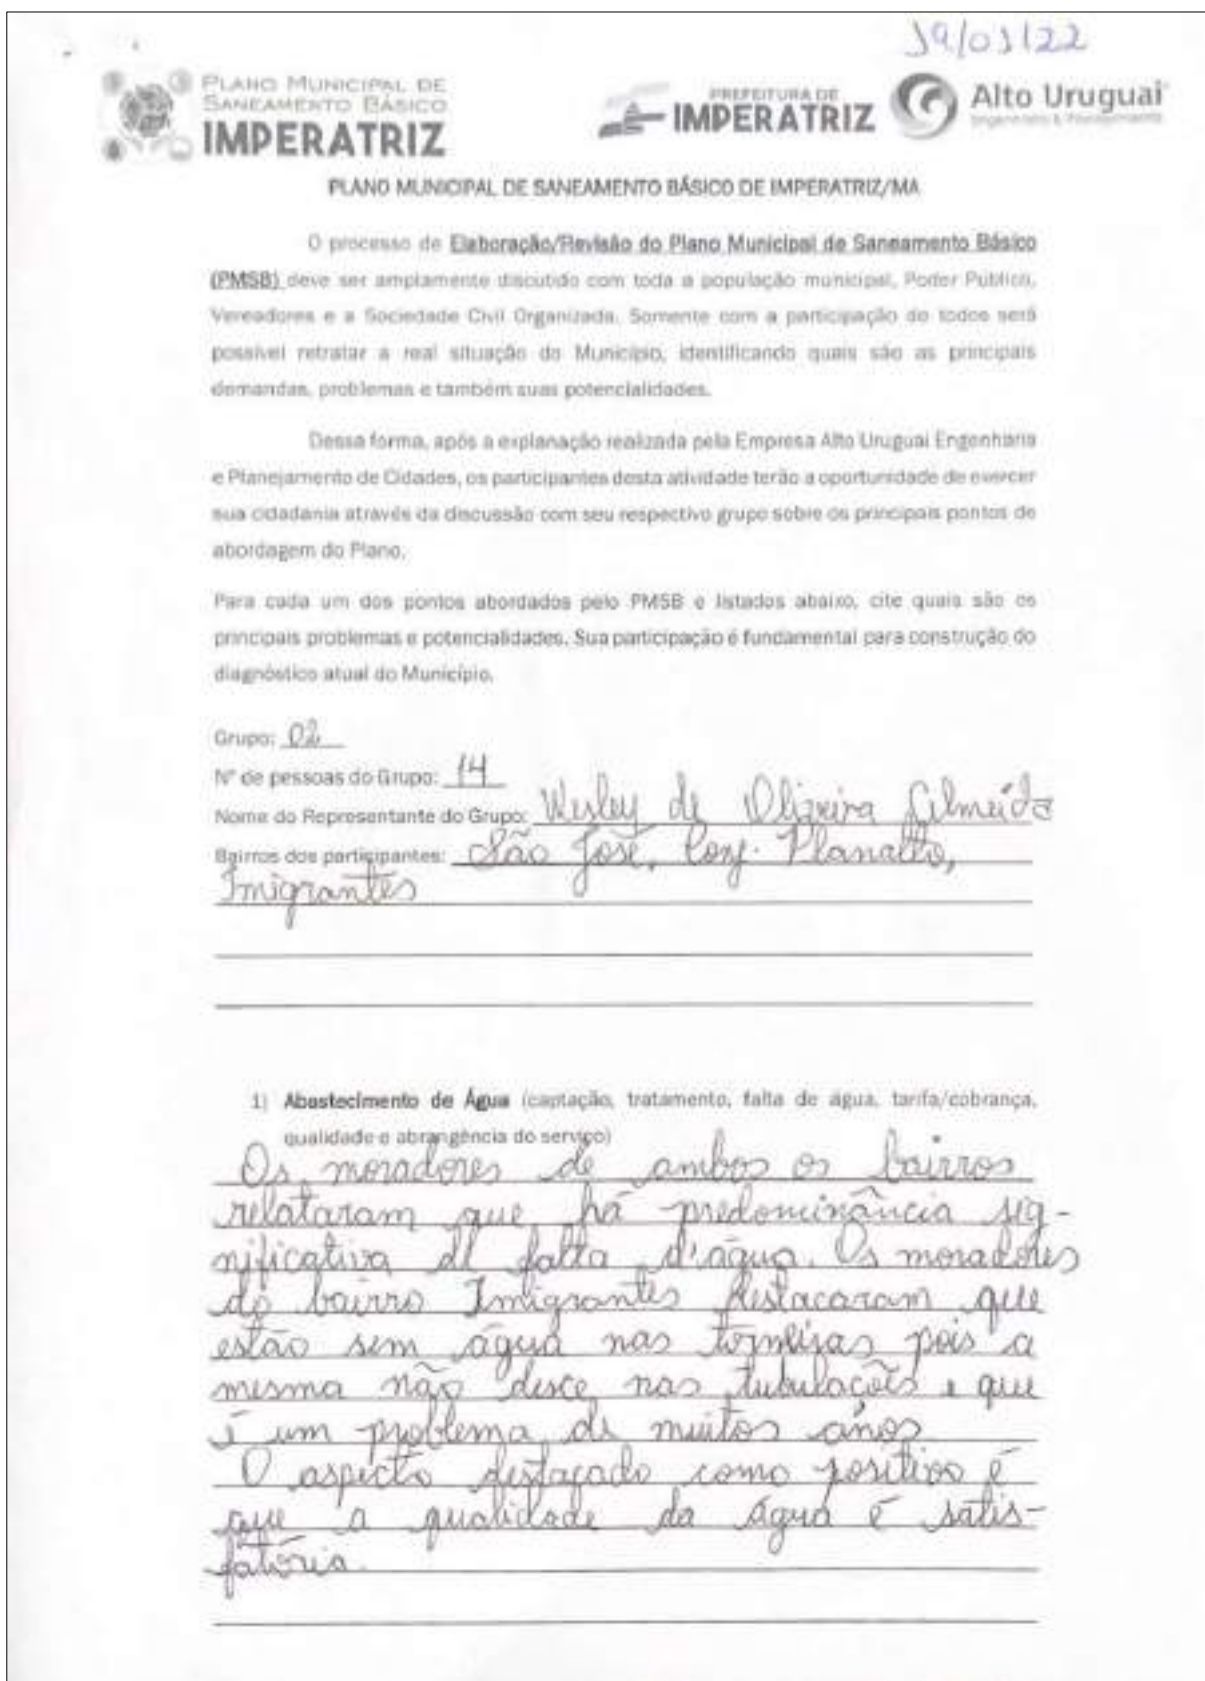 19/01/22
PLANO MUNICIPAL DE
SANEAMENTO BÁSICO
IMPERATRIZ
PREFEITURA DE
IMPERATRIZ
Alto Uruguai
PLANO MUNICIPAL DE SANEAMENTO BÁSICO DE IMPERATRIZ/MA
O processo de Elaboração/Revisão do Plano Municipal de Saneamento Básico
(PMSB) deve ser amplamente discutido com toda a população municipal, Poder Público,
Vereadores e a Sociedade Civil Organizada. Somente com a participação de todos será
possível retratar a real situação do Município, identificando quais são as principais
demandas, problemas e também suas potencialidades.
Dessa forma, após a explanação realizada pela Empresa Alto Uruguai Engenharia
e Planejamento de Cidades, os participantes desta atividade terão a oportunidade de exercer
sua cidadania através da discussão com seu respectivo grupo sobre os principais pontos de
abordagem do Plano.
Para cada um dos pontos abordados pelo PMSB e listados abaixo, cite quais são os
principais problemas e potencialidades. Sua participação é fundamental para construção do
diagnóstico atual do Município.
Grupo: 02
Nº de pessoas do Grupo: 14
Nome do Representante do Grupo: Wesley de Oliveira Almeida
Bairros dos participantes: São José, Conj. Planalto,
Imigrantes
1) Abastecimento de Água (captação, tratamento, falta de água, tarifa/cobrança,
qualidade e abrangência do serviço)
Os moradores de ambos os bairros
relataram que há predominância sig-
nificativa de falta d'água. Os moradores
do bairro Imigrantes destacaram que
estão sem água nas torneiras pois a
mesma não desce nas tubulações e que
é um problema de muitos anos
O aspecto destacado como positivo é
que a qualidade da água é satis-
fatória.